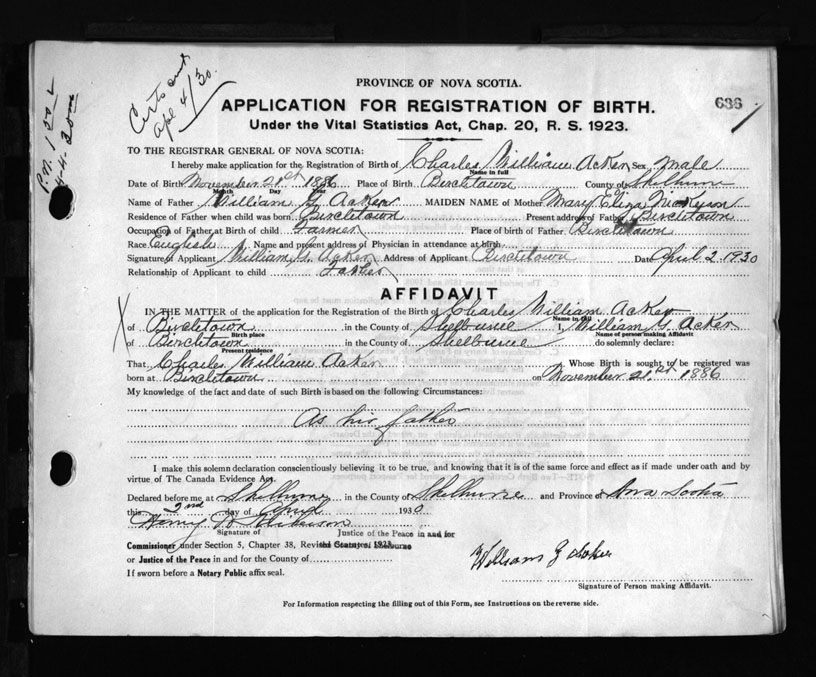 Certs out
Apl 4/30.
P.N. 1
4.4.30
PROVINCE OF NOVA SCOTIA.
APPLICATION FOR REGISTRATION OF BIRTH.
636
Under the Vital Statistics Act, Chap. 20, R. S. 1923.
TO THE REGISTRAR GENERAL OF NOVA SCOTIA:
I hereby make application for the Registration of Birth of Charles William Acker Sex Male
Name in full
Date of Birth November 21st 1886 Place of Birth Birchtown County of Shelburne
Month Day Year
Name of Father William G. Acker MAIDEN NAME of Mother Mary Eliza
Residence of Father when child was born Birchtown Present address of Father Birchtown
Occupation of Father at Birth of child Farmer Place of birth of Father Birchtown
Race English Name and present address of Physician in attendance at birth
Signature of Applicant William G. Acker Address of Applicant Birchtown Date April 2 1930
Relationship of Applicant to child Father
AFFIDAVIT
IN THE MATTER of the application for the Registration of the Birth of Charles William Acker
Name in full
of Birchtown in the County of Shelburne I, William G. Acker
Birth place Name of person making Affidavit
of Birchtown in the County of Shelburne do solemnly declare:
Present residence
That Charles William Acker Whose Birth is sought to be registered was
born at Birchtown on November 21st 1886
My knowledge of the fact and date of such Birth is based on the following Circumstances:
As his father
I make this solemn declaration conscientiously believing it to be true, and knowing that it is of the same force and effect as if made under oath and by
virtue of The Canada Evidence Act.
Declared before me at Shelburne in the County of Shelburne and Province of Nova Scotia
this 2nd day of April 1930
Signature of Justice of the Peace in and for
Commissioner under Section 5, Chapter 38, Revised Statutes, 1923
or Justice of the Peace in and for the County of
If sworn before a Notary Public affix seal.
William G Acker
Signature of Person making Affidavit.
For Information respecting the filling out of this Form, see Instructions on the reverse side.